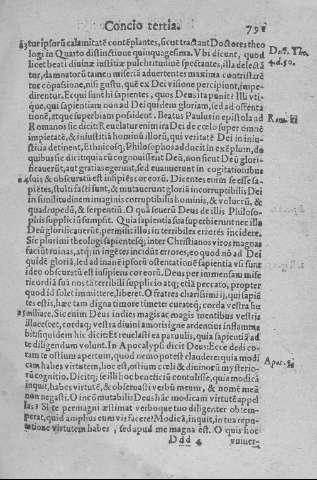 Concio tertia. 791
tur ipsorũ calamitatẽ contẽplantes, sicut tractant Doctores theo
logi in Quarto distinctione quinquagesima. Vbi dicunt, quod
licet beati diuinæ iustitiæ pulchritudinẽ spectantes, illa delectã
tur, damnatorũ tamen miseriã aduertentes maxima contristarẽ
tur cõpassione, nisi gustu, quẽ ex Dei visione percipiunt, impe-
direntur. Et qui sunt hi sapientes, quos Deus ita punit? Illi vti-
que, qui sapientiam non ad Dei quidem gloriam, sed ad ostenta
tionẽ, atque superbiam possident. Beatus Paulus in epistola ad
Romanos sic dicit: Reuelatur enim ira Dei de cœlo super omnẽ
impietatẽ, & iniustitiã hominũ illorũ, qui veritatẽ Dei in iniu-
stitia detinent, Ethnicosq; Philosophos adducit in exẽplum, de
quibus sic dicit: quia cũ cognouissent Deũ, non sicut Deũ glori-
ficauerũt, aut gratias egerunt, sed euanuerunt in cogitationibus
suis & obscuratũ est insipiẽs cor eorũ. Dicentes enim se esse sa-
piẽtes, stulti facti sunt, & mutauerunt gloriã incorruptibilis Dei
in similitudinem imaginis corruptibilis hominis, & volucrũ, &
quadrupedũ, & serpentũ. O quã seuerũ Deus de illis Philoso-
phis supplicium sumpsit. Quia sapientia sua superbierunt nec illa
Deũ glorificauerũt, permisit illos in terribiles errores incidere.
Sic plurimi theologi sapientesq; inter Christianos viros magnas
faciũt ruinas, atq; in ingẽtes incidũt errores, eo quod nõ ad Dei
quidẽ gloriã, sed ad inanẽ ipsorũ ostentationẽ sapientia vsi sunt
ideo obscuratũ est insipiens cor eorũ. Deus per immensam mise
ricordiã suã nos tã terribili supplicio atq; etiã peccato, propter
quod id solet immittere, liberet. O fratres charissimi ij, qui sapiẽ
tes estis, hæc tam digna timore timete curateq; corda vestra hu
miliare. Sic enim Deus indies magis ac magis mentibus vestris
illucescet, cordaq; vestra diuini amoris igne ardentius inflamma
bit siquidem hic dicit: Et reuelasti ea paruulis, quia sapientiã ad
te diligendam volunt. In Apocalypsi dicit Deus: Ecce dedi co-
ram te ostium apertum, quod nemo potest claudere: quia modi
cam habes virtutem, hoc est, ostium cœli & diuinorũ mysterio-
rũ cognitio. Dicitq; se illi hoc beneficiũ contulisse, quia modicã
inquit, habes virtutẽ, & obseruasti verbũ meum, & nomẽ meũ
non negasti. O incõmutabilis Deus hãc modicam virtutẽ appel
las? Si te permagni æstimat verboque tuo diligenter obtem-
perat, quid amplius eum vis facere? Modicã, inquit, in tua repu-
tatione virtutem habes, sed apud me magna est. O quis hoc
Ddd 4 vniuer-
D. Tho.
4. d. 50.
Rom. 1.
Apoc. 3.